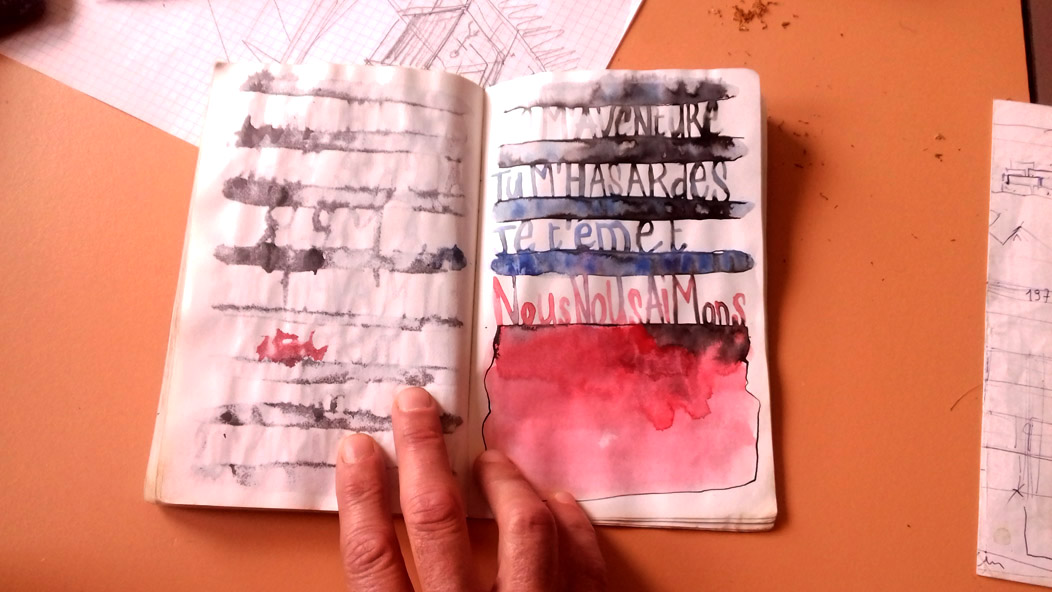 M'AVENtURE
Tu M'HASARdES
Je t'emet
NousNoUsAiMons
137